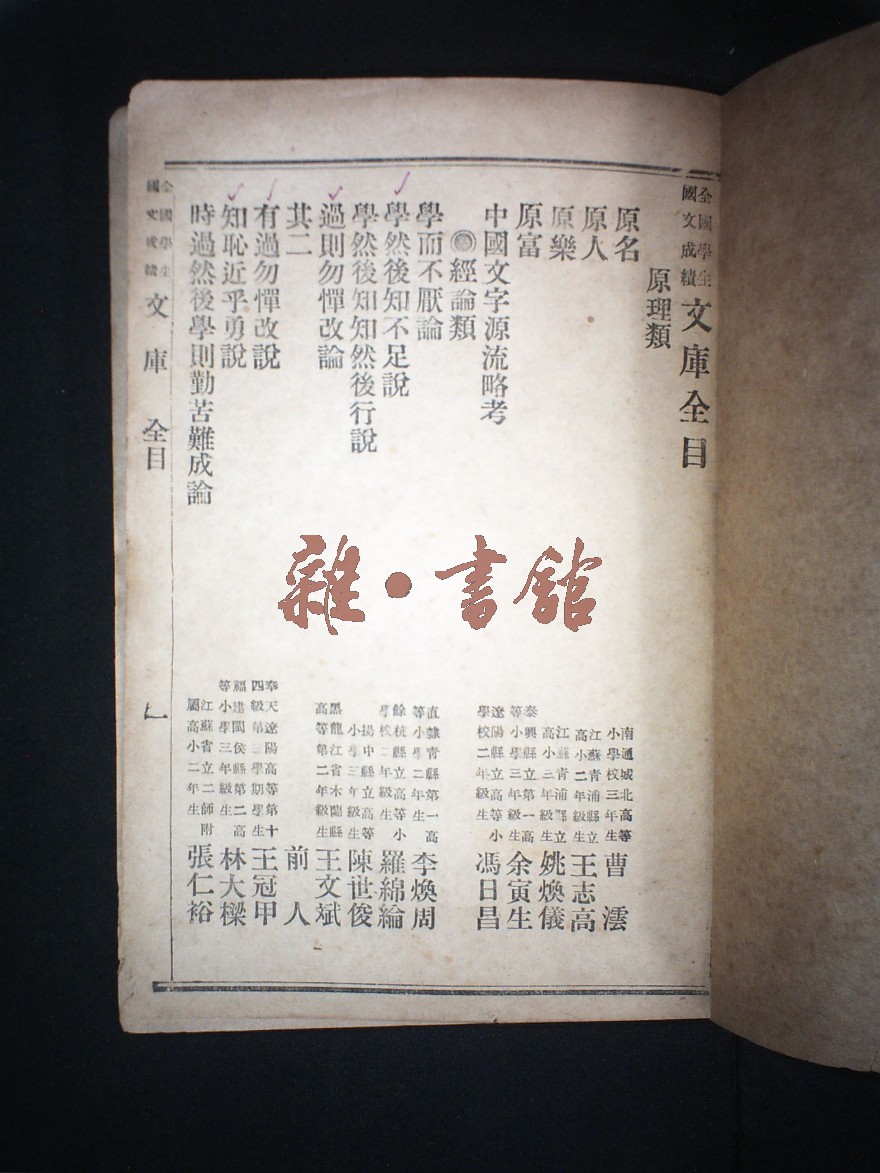 全國學生國文成績文庫全目
原理類
原名 南通城北高等小學校三年生 曹澐
原人 江蘇青浦縣立高小二年級生 王志高
原樂 江蘇青浦縣立高小三年級生 姚煥儀
原富 泰興縣立第一高等小學三年級生 余寅生
中國文字源流略考 遼陽縣立高等小學校二年級生 馮日昌
經論類
學而不厭論 直隸青縣第一高等小學二年生 李煥周
學然後知不足說 餘杭縣立高等小學校二年級生 羅綿綸
學然後知知然後行說 揚中縣立高等小學三年級生 陳世俊
過則勿憚改論 黑龍江省木蘭縣高等第二年級生 王文斌
其二 前人
有過勿憚改說 奉天遼陽高等第十四級第三學期學生 王冠甲
知恥近乎勇說 福建閩侯縣第二高等小學三年級生 林大樑
時過然後學則勤苦難成論 江蘇省立二師附屬高小二年生 張仁裕
全國學生國文成績文庫 全目
雜·書館